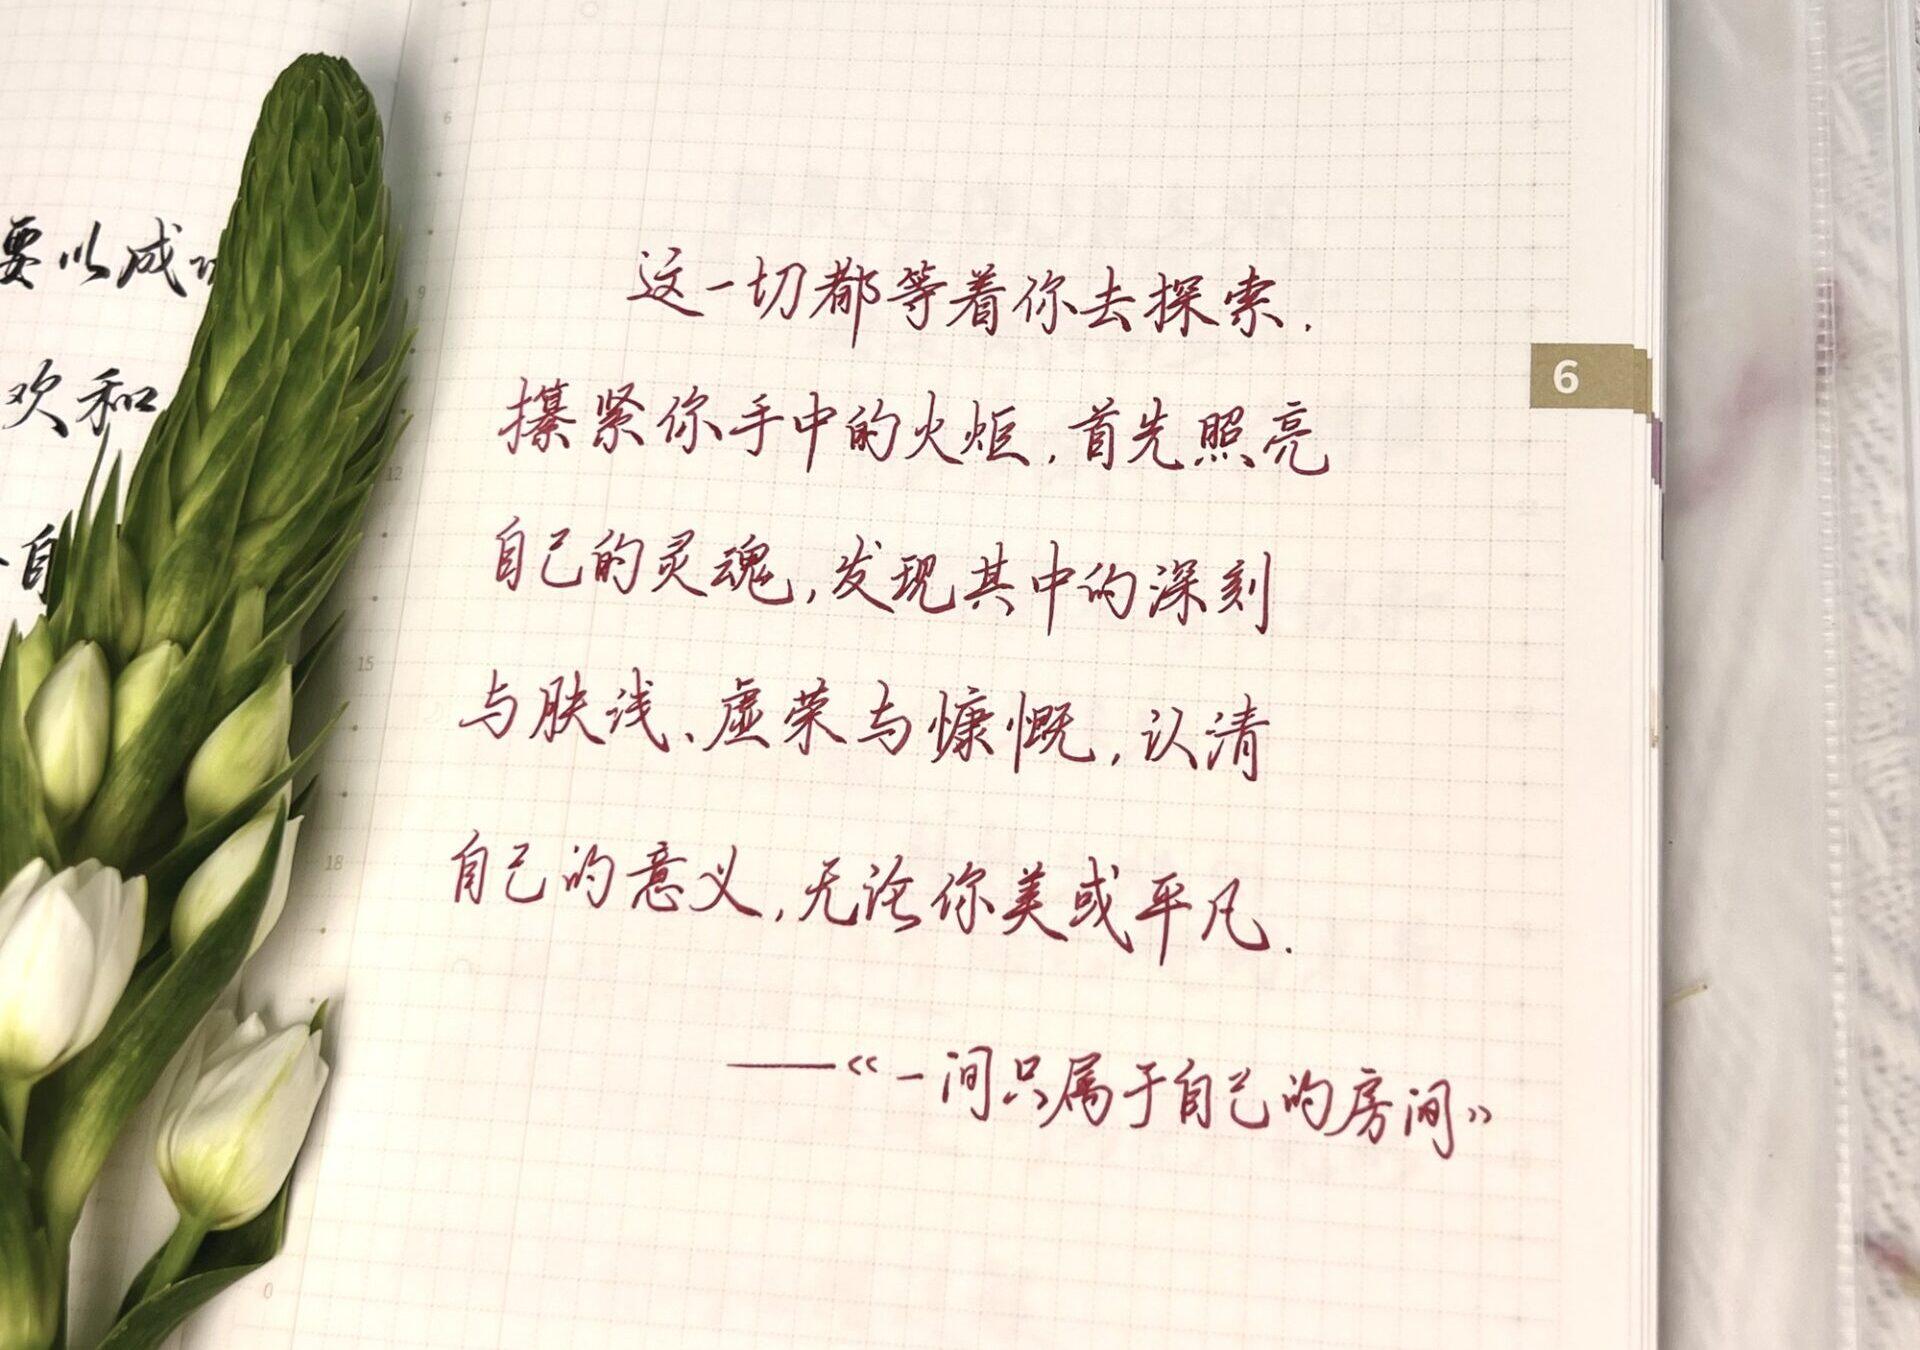 要以成功
欢和
自
这一切都等着你去探索.
攥紧你手中的火炬,首先照亮
自己的灵魂,发现其中的深刻
与肤浅、虚荣与慷慨,认清
自己的意义,无论你美或平凡.
——《一间只属于自己的房间》
6
6
9
12
15
18
0